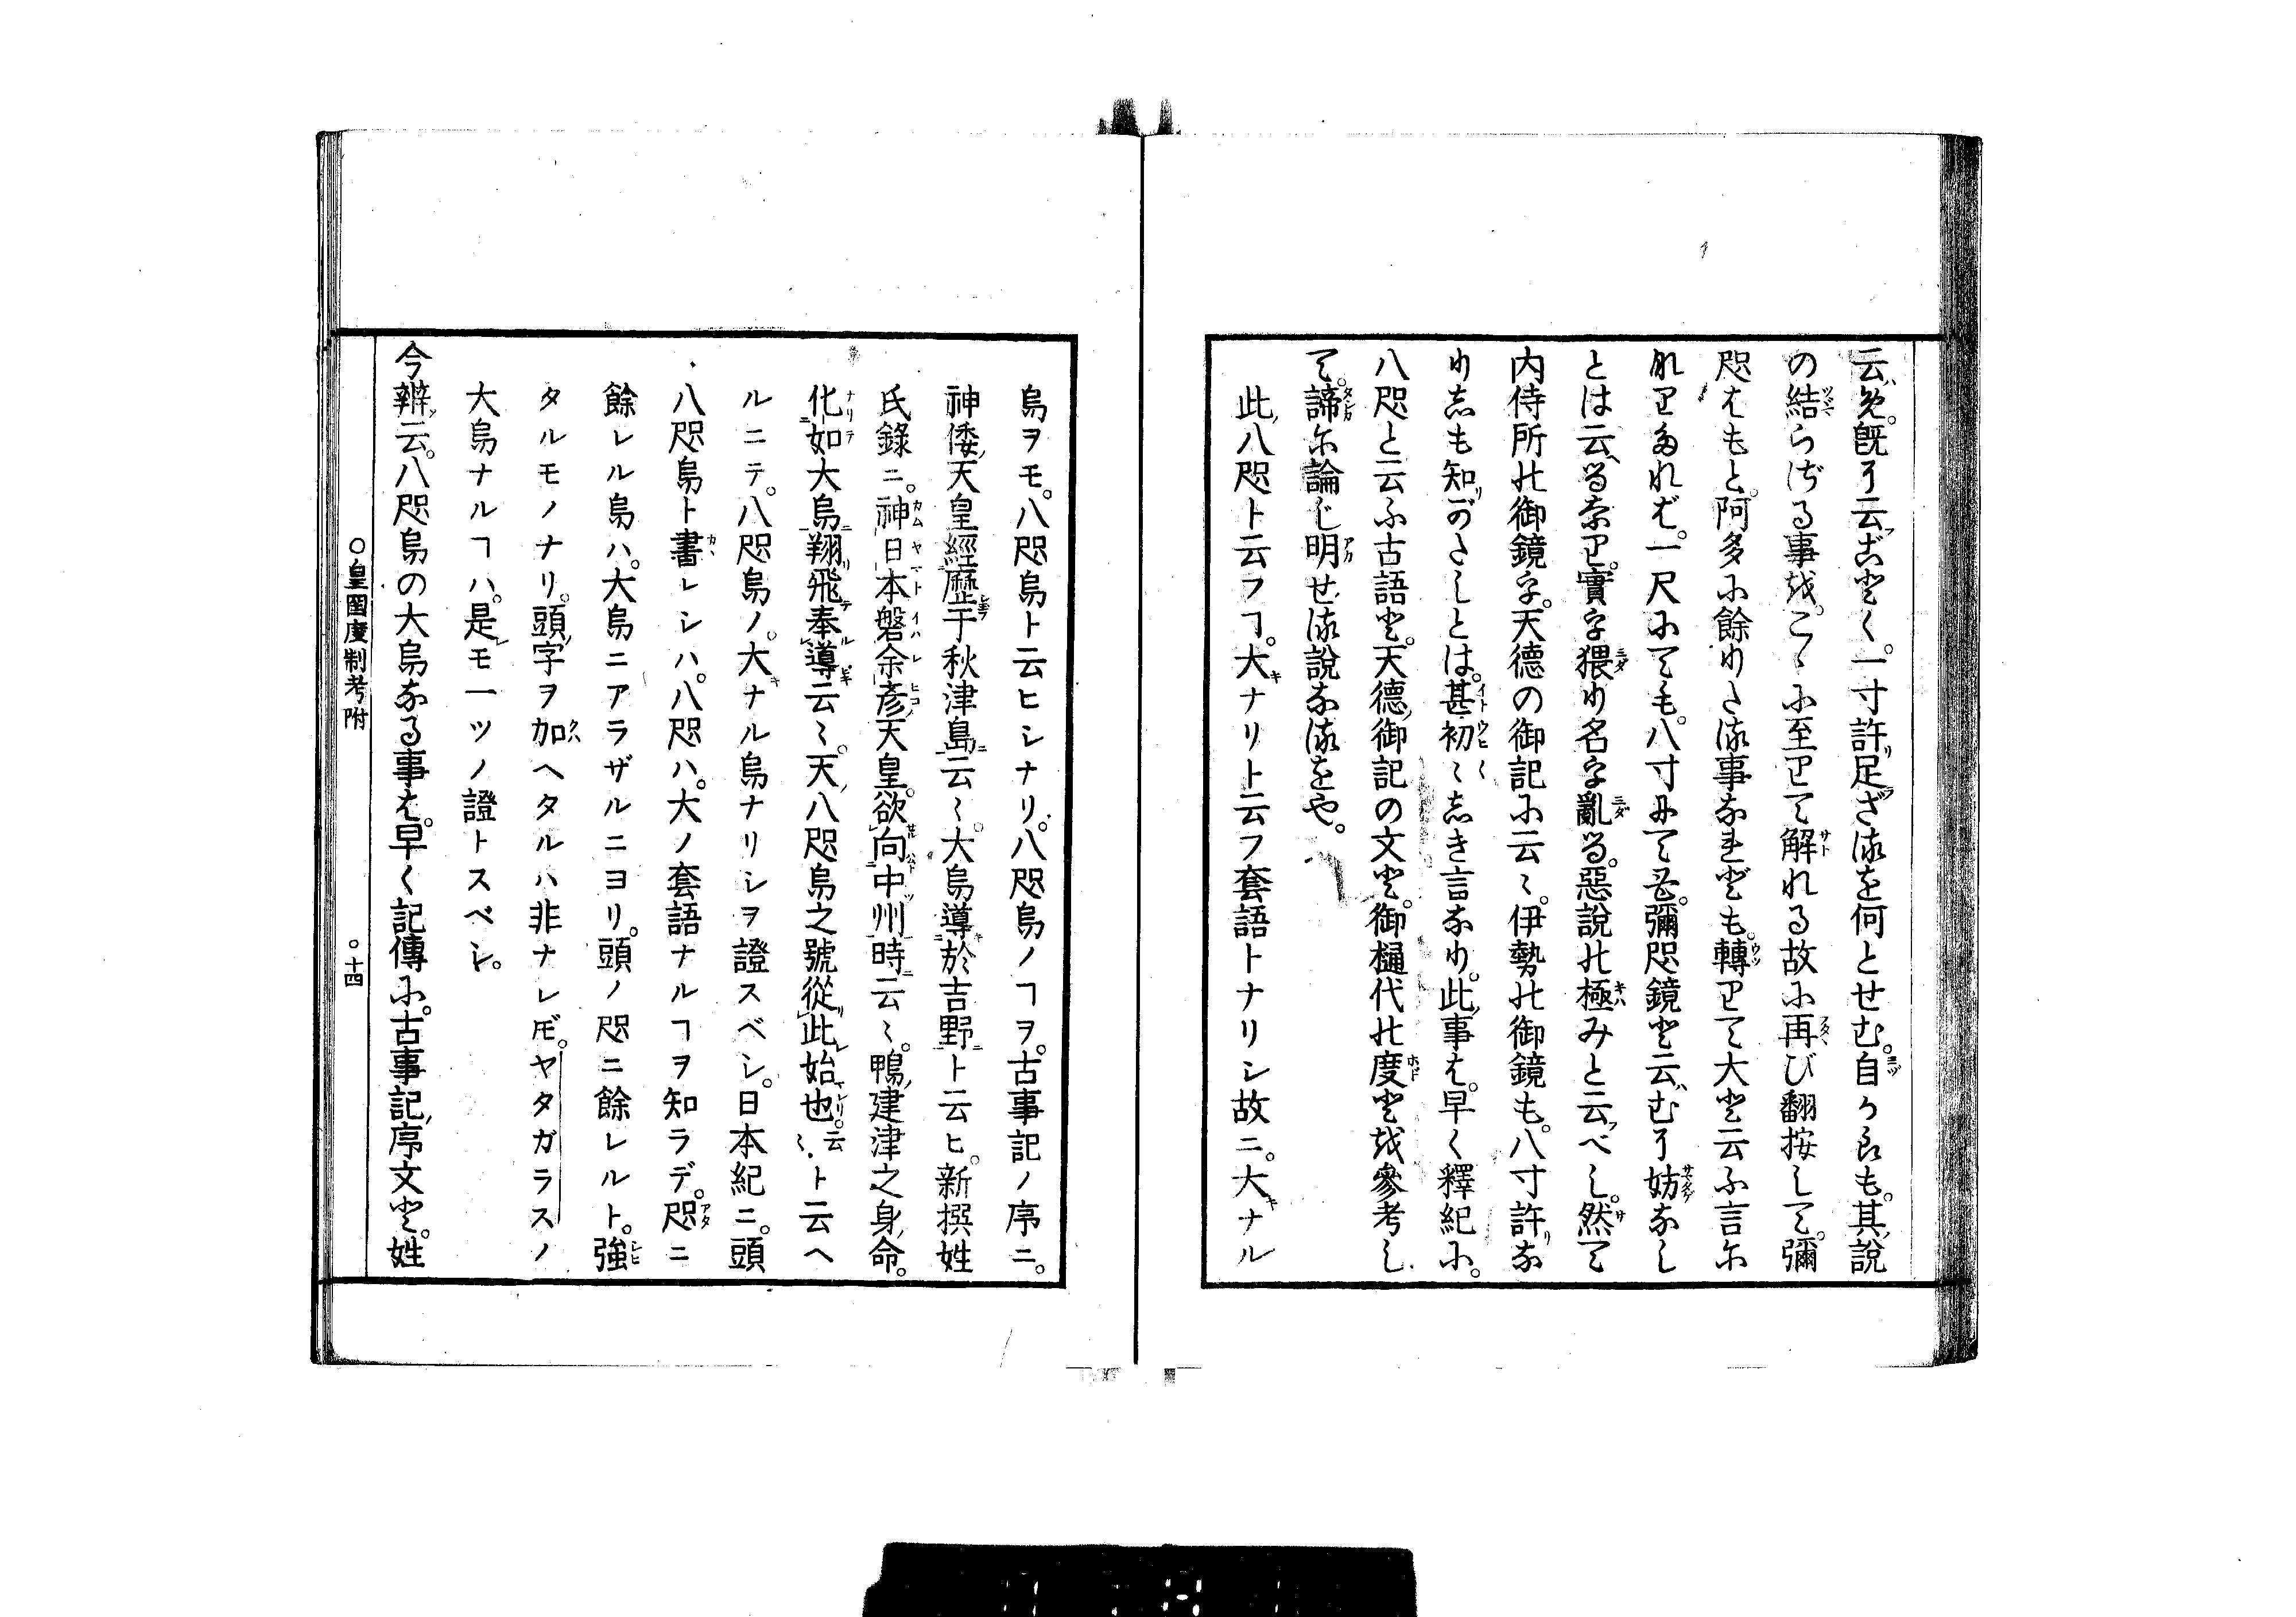 云め。既に云ごとく。一寸許足ざるを何とせむ。自から も。其説
の結らざる事は。こゝに至りて解れる故に再び翻按して。彌
咫はもと。阿多に餘りたる事なれども。轉りて大と云ふ言に
なりたれば。一尺にても。八寸にても。彌咫鏡と云むに妨なし
とは云るなり。實に猥り名に亂る。惡説の極みと云べし。然て
内侍所の御鏡に。天德の御記に云〻。伊勢の御鏡も。八寸許な
りしも知がたしとは。甚初〻しき言なり。此事は。早く釋紀に。
八咫と云ふ古語と。天德御記の文と。御樋代の度とを參考し
て。諦に論じ明せる説なるをや。
此八咫ト云フヿ。大ナリト云フ套語トナリシ故ニ。大ナル
烏ヲモ。八咫烏ト云ヒシナリ。八咫烏ノヿヲ。古事記ノ序ニ。
神倭天皇經歷于秋津島云〻。大烏導於吉野ト云ヒ。新撰姓
氏錄ニ。神日本磐余彥天皇。欲向中州時云〻。鴨建津之身命。
化如大烏翔飛奉導云〻。天八咫烏之號從此始也。云〻。ト云ヘ
ルニテ。八咫烏ノ。大ナル烏ナリシヲ證スベシ。日本紀ニ。頭
八咫烏ト書レシハ。八咫ハ。大ノ套語ナルヿヲ知ラデ。咫ニ
餘レル烏ハ。大烏ニアラザルニヨリ。頭ノ咫ニ餘レルト。強
タルモノナリ。頭字ヲ加ヘタルハ非ナレドモ。ヤタガラスノ
大烏ナルヿハ。是モ一ツノ證トスベシ。
今辨云。八咫烏の大烏なる事は。早く記傳に。古事記序文と。姓
○皇國度制考附
○十四